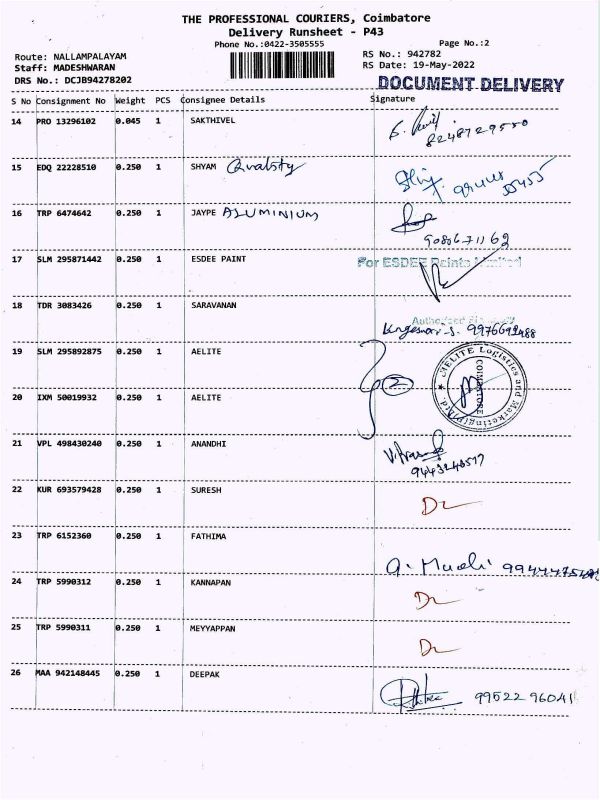 THE PROFESSIONAL COURIERS, Coimbatore
Delivery Runsheet - P43
Phone No.:0422-3505555
Page No.:2
Route: NALLAMPALAYAM
RS No.: 942782
Staff: MADESHWARAN
RS Date: 19-May-2022
DRS No.: DCJB94278202
DOCUMENT DELIVERY
S No Consignment No Weight PCS Consignee Details Signature
14 PRO 13296102 0.045 1 SAKTHIVEL
8248729550
15 EDQ 22228510 0.250 1 SHYAM Quality
16 TRP 6474642 0.250 1 JAYPE ALUMINIUM
9080671162
17 SLM 295871442 0.250 1 ESDEE PAINT
For ESDEE Paints Limited
18 TDR 3083426 0.250 1 SARAVANAN
19 SLM 295892875 0.250 1 AELITE
2
AELITE Logistics and Marketing (P) Ltd.
COIMBATORE
20 IXM 50019932 0.250 1 AELITE
21 VPL 498430240 0.250 1 ANANDHI
22 KUR 693579428 0.250 1 SURESH
23 TRP 6152360 0.250 1 FATHIMA
24 TRP 5990312 0.250 1 KANNAPAN
25 TRP 5990311 0.250 1 MEYYAPPAN
26 MAA 942148445 0.250 1 DEEPAK
99522 96041